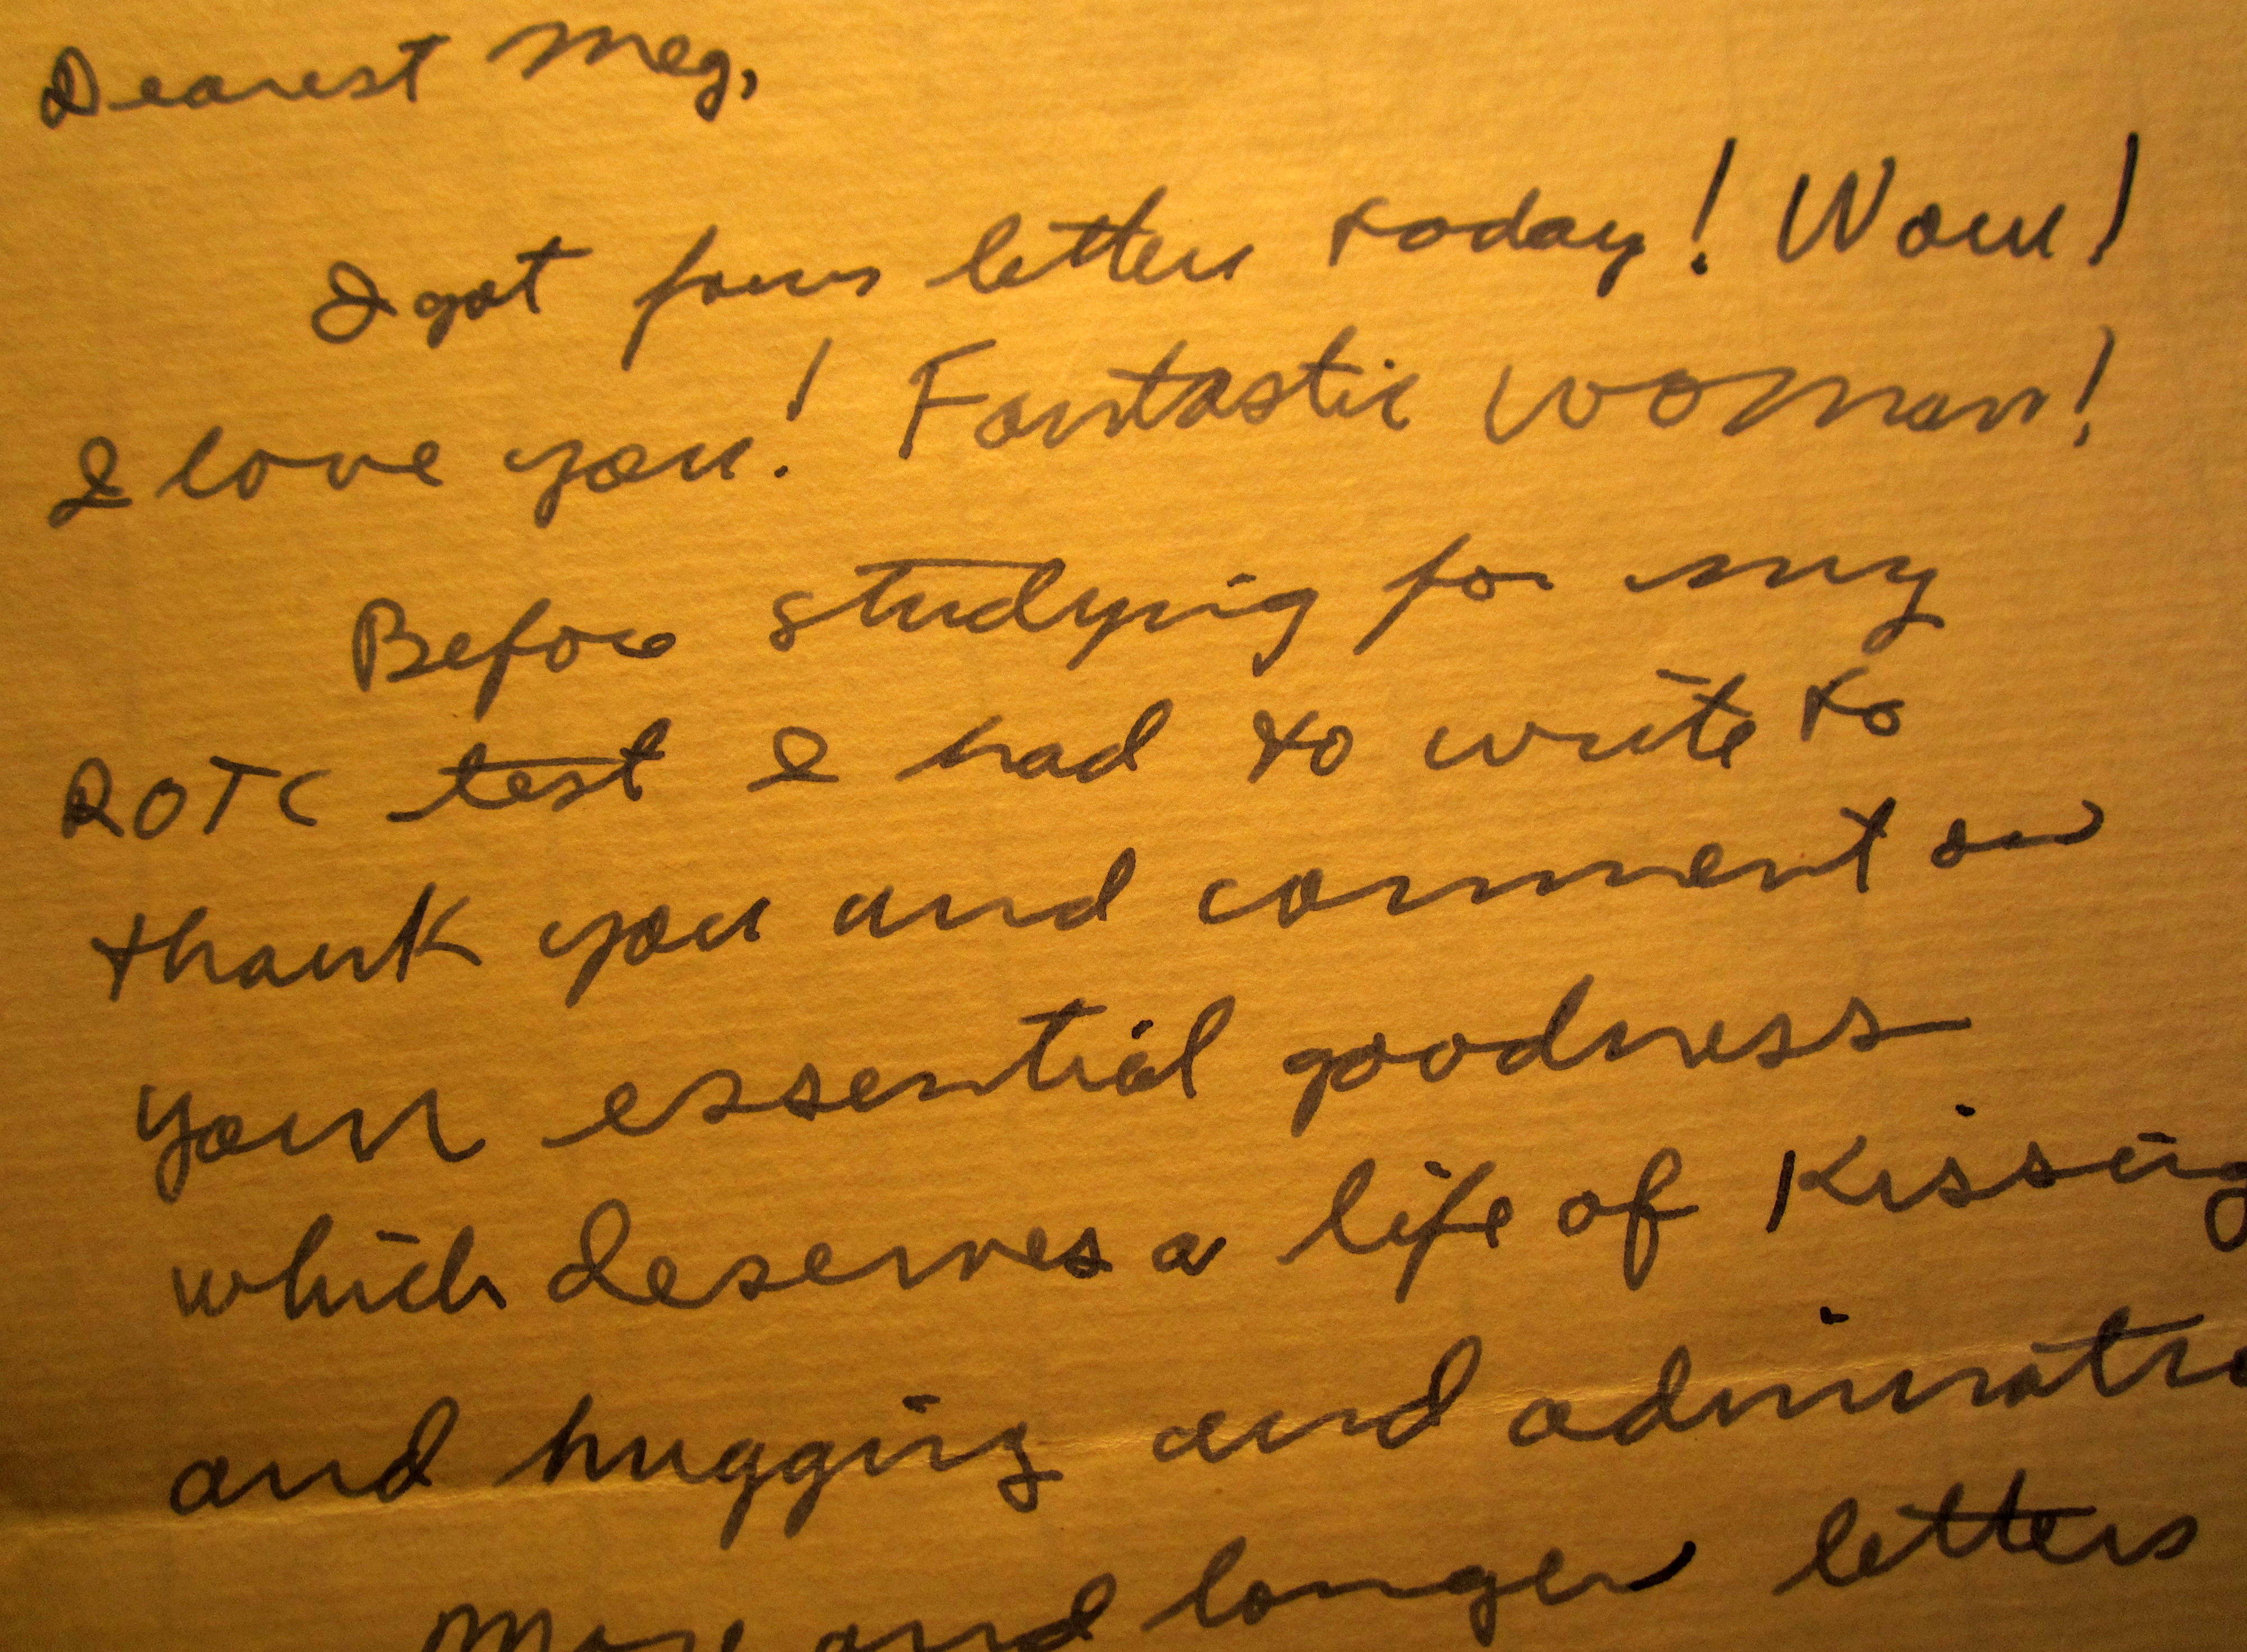 Dearest Meg,
I got four letters today! Wow!
I love you! Fantastic woman!
Before studying for my
ROTC test I had to write to
thank you and comment on
your essential goodness
which deserves a life of kissing
and hugging and admiratio
More and longer letters